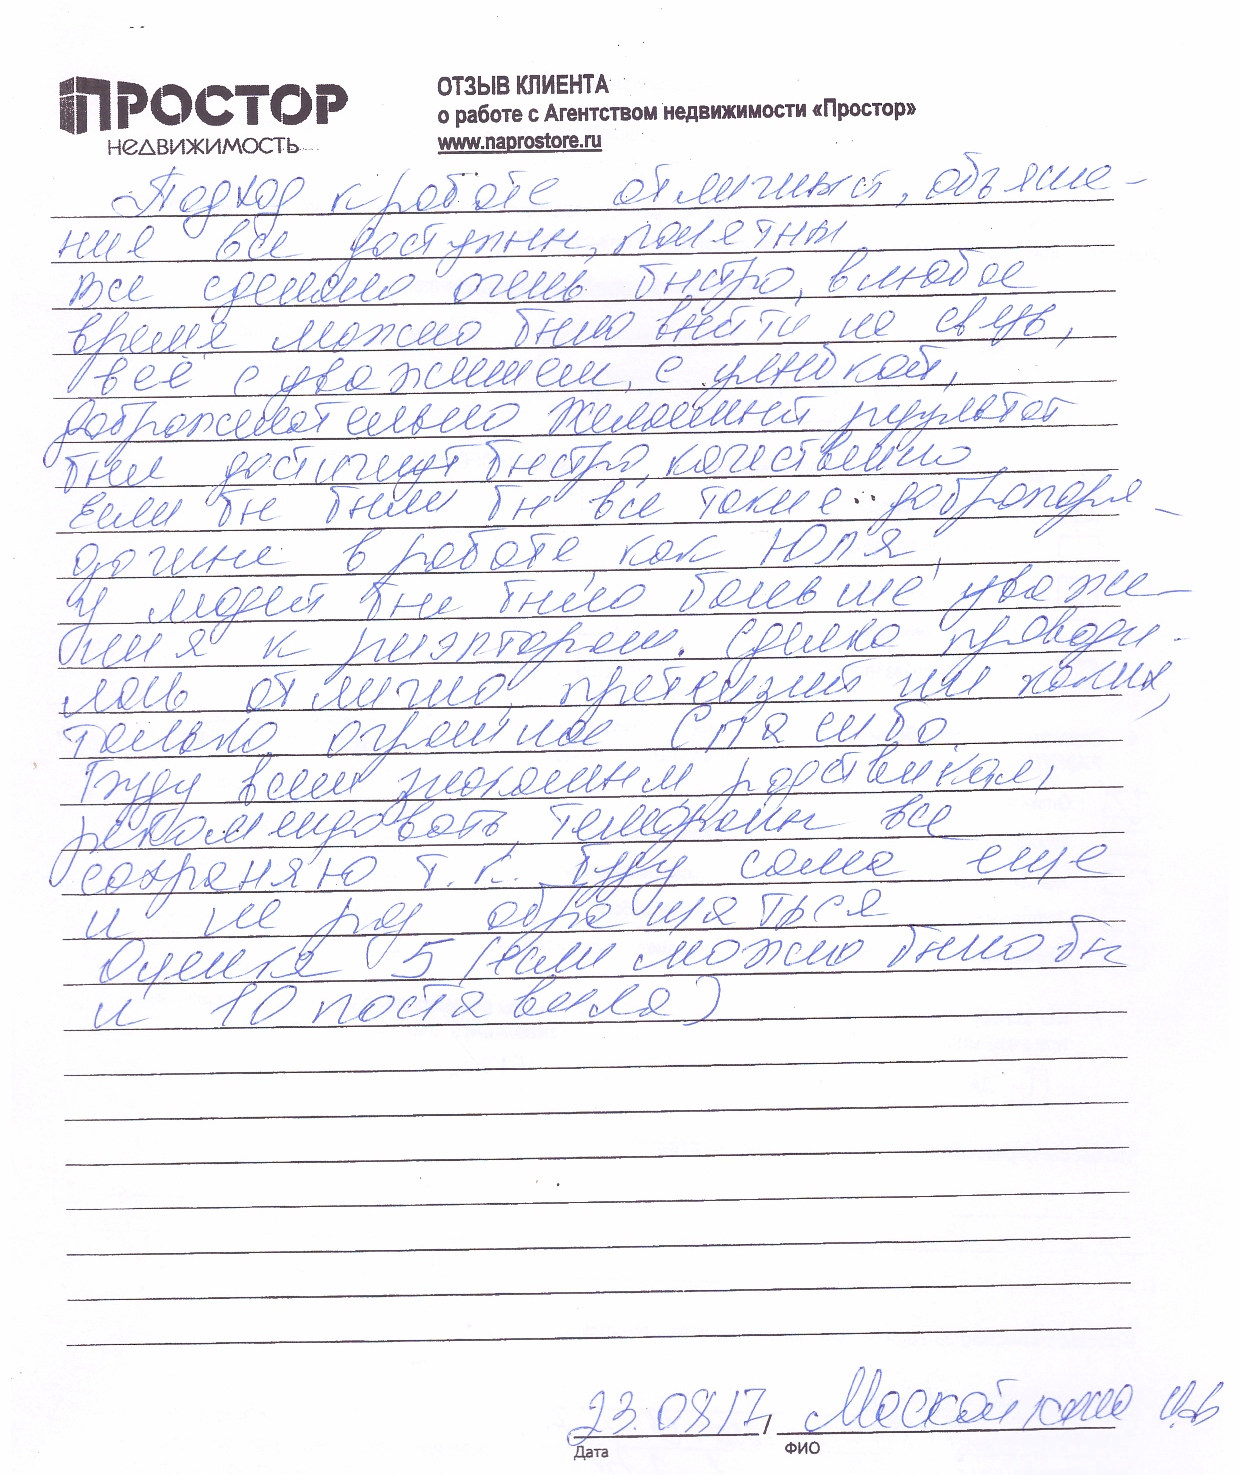 ПРОСТОР
НЕДВИЖИМОСТЬ
ОТЗЫВ КЛИЕНТА
о работе с Агентством недвижимости «Простор»
www.naprostore.ru
Подход к работе отличный, объясне-
ния все доступны, понятны
Все сделано очень быстро, в любое
время можно было выйти на связь,
всё с уважением, с улыбкой,
доброжелательно желаемый результат
был достигнут быстро, качественно
Если бы были бы все такие добропоря-
дочные в работе, как Юля,
у людей бы было больше уваже-
ния к риэлторам. Сделка проводи-
лась отлично, претензий ни каких,
только огромное Спасибо.
Буду всем знакомым родственикам,
рекомендовать, телефоны все
сохраняю т.к. буду сама еще
и не раз обращаться
Оценка 5 (если можно было бы
и 10 поставила)
23.08.17,
Дата
ФИО